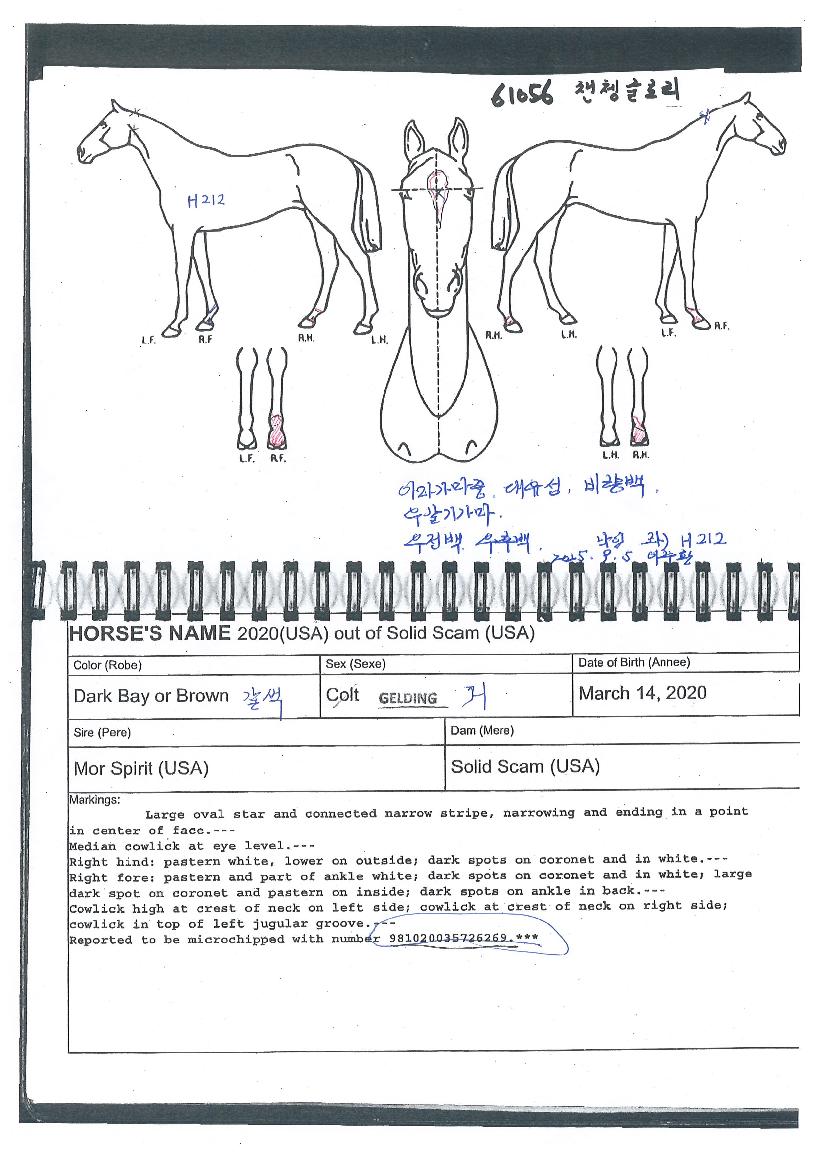 61056 챈쳉글로리
H212
L.F. R.F R.H. L.H. R.H. L.H. L.F. R.F.
L.F. R.F. L.H. R.H.
이마가마중, 대유성, 비량백,
우전백 우후백. 낙인 좌) H212
2025. 9. 5
HORSE'S NAME 2020(USA) out of Solid Scam (USA)
Color (Robe) Sex (Sexe) Date of Birth (Annee)
Dark Bay or Brown 갈색 Colt GELDING 거 March 14, 2020
Sire (Pere) Dam (Mere)
Mor Spirit (USA) Solid Scam (USA)
Markings:
Large oval star and connected narrow stripe, narrowing and ending in a point
in center of face.---
Median cowlick at eye level.---
Right hind: pastern white, lower on outside; dark spots on coronet and in white.---
Right fore: pastern and part of ankle white; dark spots on coronet and in white; large
dark spot on coronet and pastern on inside; dark spots on ankle in back.---
Cowlick high at crest of neck on left side; cowlick at crest of neck on right side;
cowlick in top of left jugular groove.---
Reported to be microchipped with number 981020035726269.***